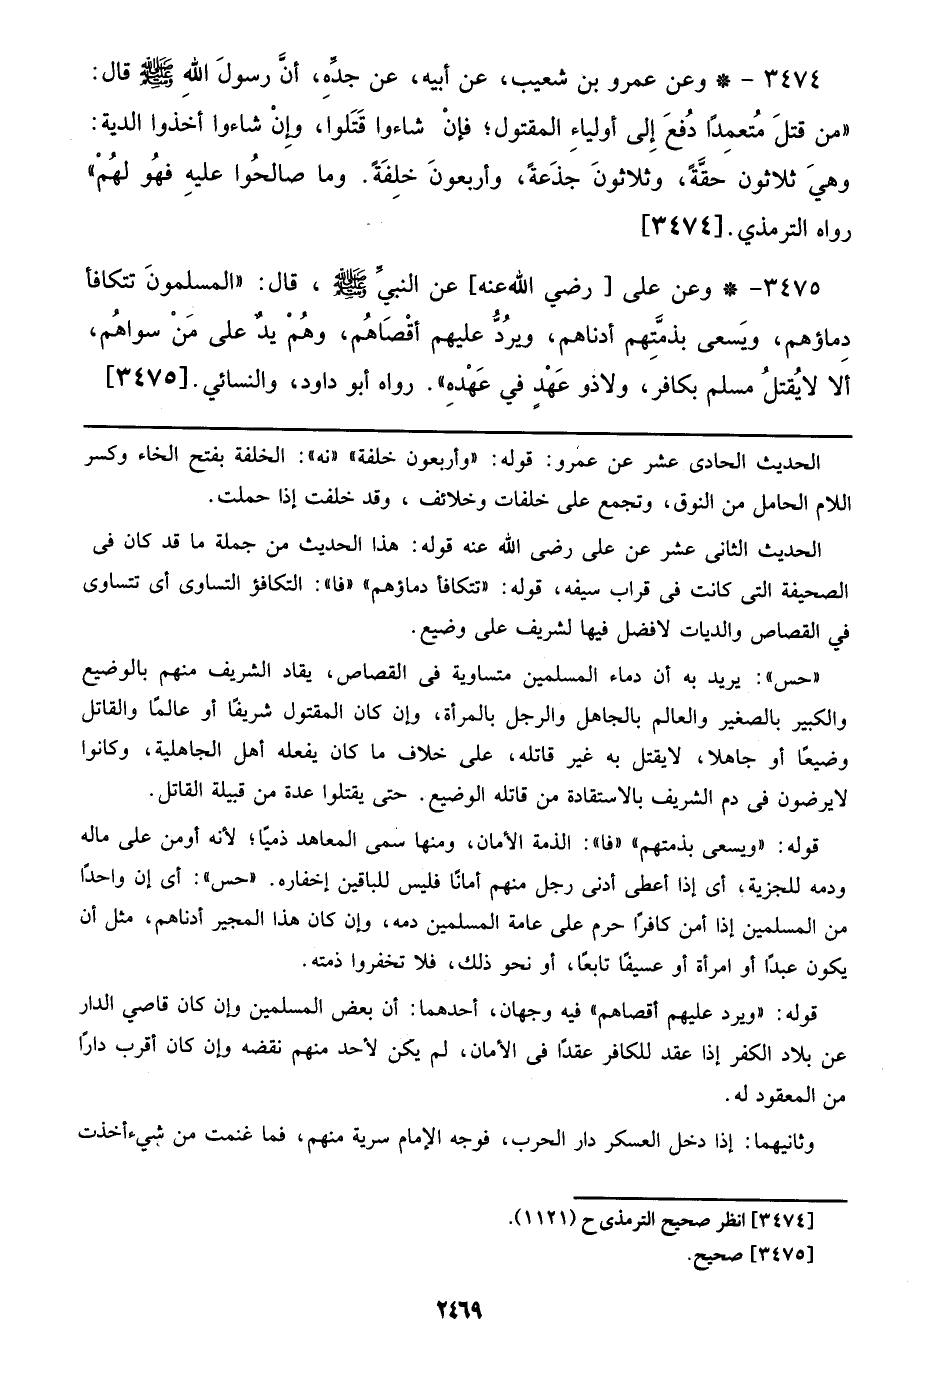 ٣٤٧٤ – * وعن عمرو بن شعيب، عن أبيه، عن جدِّه، أنَّ رسولَ اللهِ ﷺ قال:
«من قتلَ مُتعمدًا دُفعَ إلى أولياءِ المقتول؛ فإنْ شاءوا قَتَلوا، وإنْ شاءوا أخذوا الدية:
وهيَ ثلاثون حقَّةً، وثلاثونَ جذَعةً، وأربعونَ خلِفَةً. وما صالحُوا عليهِ فهُو لهُمْ»
رواه الترمذي.[٣٤٧٤]
٣٤٧٥- * وعن على [ رضي اللهعنه] عن النبيِّ ﷺ ، قال: «المسلمونَ تتكافأ
دِماؤهم، ويَسعى بذمَّتِهم أدناهم، ويرُدُّ عليهم أقْصَاهُم، وهُمْ يدٌ على مَنْ سواهُم،
ألا لايُقتلُ مسلم بكافر، ولاذو عَهْدٍ في عَهْدِه». رواه أبو داود، والنسائي.[٣٤٧٥]
الحديث الحادى عشر عن عمرو: قوله: «وأربعون خلفة» «نه»: الخلفة بفتح الخاء وكسر
اللام الحامل من النوق، وتجمع على خلفات وخلائف ، وقد خلفت إذا حملت.
الحديث الثانى عشر عن على رضى الله عنه قوله: هذا الحديث من جملة ما قد كان فى
الصحيفة التى كانت فى قراب سيفه، قوله: «تتكافأ دماؤهم» «فا»: التكافؤ التساوى أى تتساوى
في القصاص والديات لافضل فيها لشريف على وضيع.
«حس»: يريد به أن دماء المسلمين متساوية فى القصاص، يقاد الشريف منهم بالوضيع
والكبير بالصغير والعالم بالجاهل والرجل بالمرأة، وإن كان المقتول شريفًا أو عالمًا والقاتل
وضيعًا أو جاهلا، لايقتل به غير قاتله، على خلاف ما كان يفعله أهل الجاهلية، وكانوا
لايرضون فى دم الشريف بالاستقادة من قاتله الوضيع. حتى يقتلوا عدة من قبيلة القاتل.
قوله: «ويسعى بذمتهم» «فا»: الذمة الأمان، ومنها سمى المعاهد ذميًا؛ لأنه أومن على ماله
ودمه للجزية، أى إذا أعطى أدنى رجل منهم أمانًا فليس للباقين إخفاره. «حس»: أى إن واحدًا
من المسلمين إذا أمن كافرًا حرم على عامة المسلمين دمه، وإن كان هذا المجير أدناهم، مثل أن
يكون عبدًا أو امرأة أو عسيفًا تابعًا، أو نحو ذلك، فلا تخفروا ذمته.
قوله: «ويرد عليهم أقصاهم» فيه وجهان، أحدهما: أن بعض المسلمين وإن كان قاصي الدار
عن بلاد الكفر إذا عقد للكافر عقدًا فى الأمان، لم يكن لأحد منهم نقضه وإن كان أقرب دارًا
من المعقود له.
وثانيهما: إذا دخل العسكر دار الحرب، فوجه الإمام سرية منهم، فما غنمت من شيءأخذت
[٣٤٧٤] انظر صحيح الترمذى ح (١١٢١).
[٣٤٧٥] صحيح.
٢٤٦٩